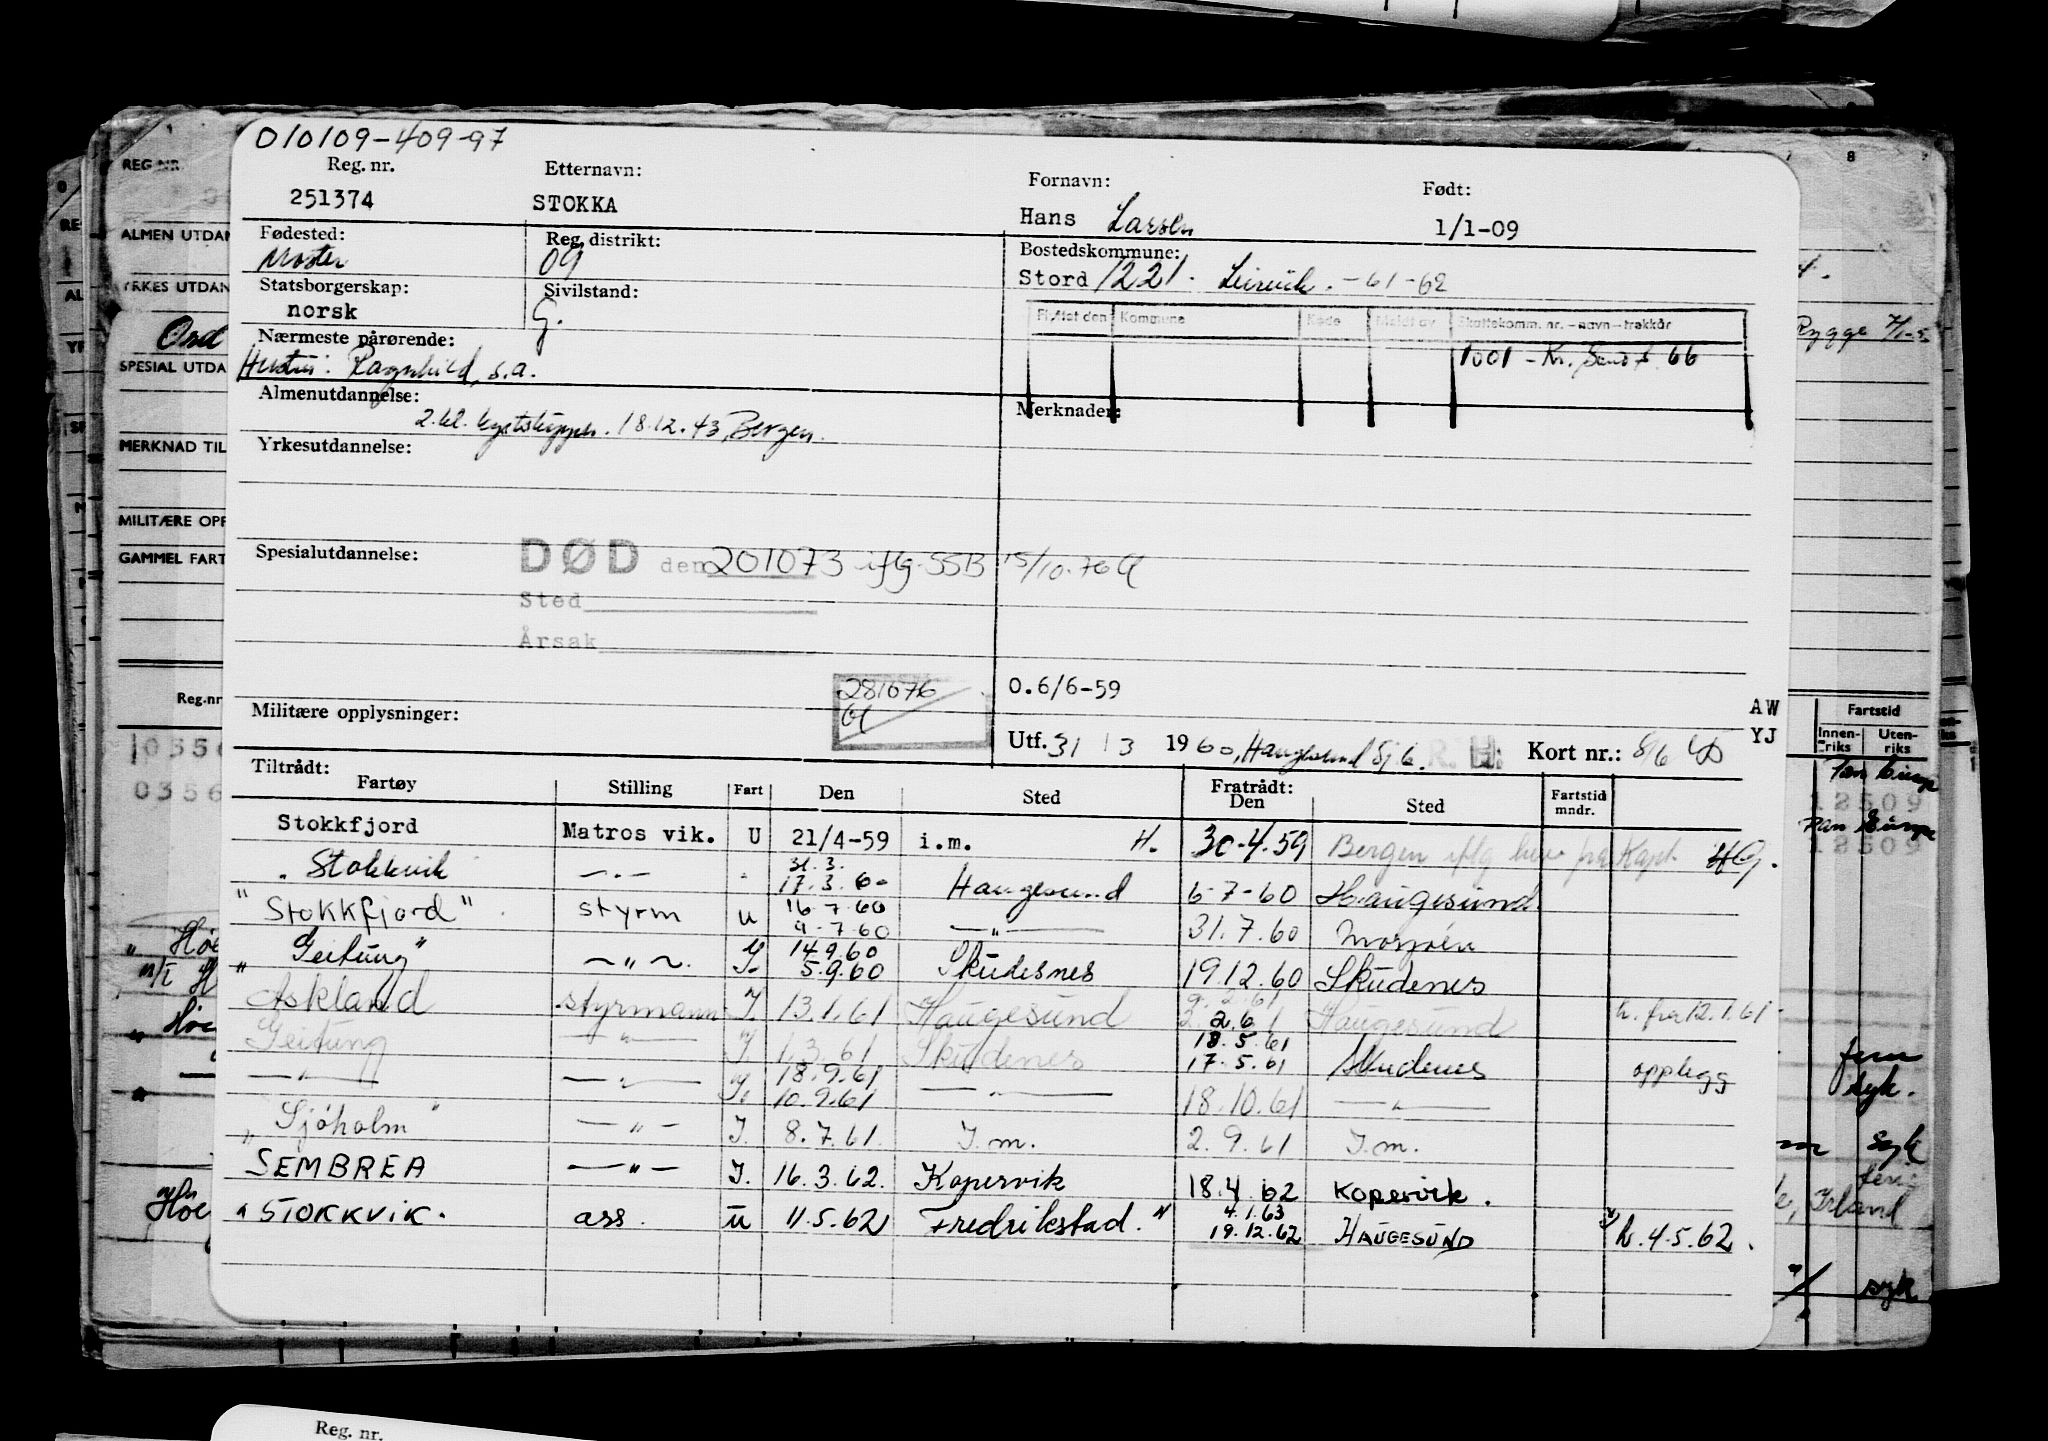 010109-409-97
Reg. nr. Etternavn: Fornavn: Født:
251374 STOKKA Hans Larsen 1/1-09
Fødested: Reg. distrikt: Bostedskommune:
Moster 09 Stord 1221. Leirvik. -61-62
Statsborgerskap: Sivilstand:
norsk G.
Flyttet den Kommune Kode Meldt av Skattekomm. nr. - navn - trekkår
Nærmeste pårørende: 1001 - Kr. Sand 66
Hustru: Ragnhild, s.a.
Almenutdannelse: Merknader:
2. kl. kystskipper. 18.12.43, Bergen.
Yrkesutdannelse:
Spesialutdannelse: DØD den 201073 iflg. SSB 15/10-76
Sted
Årsak
281076 O.6/6-59
Militære opplysninger: AW
Utf. 31 / 3 1960, Haugesund R.H. Kort nr.: 8/6 YJ
Tiltrådt: Fratrådt:
Fartøy Stilling Fart Den Sted Den Sted Fartstid mndr.
Stokkfjord Matros vik. U 21/4-59 i.m. H. 30-4.59 Bergen iflg brev fra Kapt. HG.
31.3.
" Stokkvik —"— " 17.3.60 Haugesund 6-7-60 Haugesund
16.7.60
"Stokkfjord" styrm u 9-7-60 —"— 31.7.60 Mosjøen
14.9.60
"Geitung" —"— I. 5.9.60 Skudesnes 19.12.60 Skudenes
9.2.61
Askland styrmann I. 13.1.61 Haugesund 2.6.61 Haugesund h. fra 12.1.61
18.5.61
Geitung —"— I. 1.3.61 Skudenes 17.5.61 Skudenes opplegg
18.9.61
—"— —"— I. 10.9.61 —"— 18.10.61 —"—
"Sjøholm" —"— I. 8.7.61. I.m. 2.9.61 I.m.
SEMBREA —"— I. 16.3.62. Kopervik 18.4.62 Kopervik.
4.1.63
" STOKKVIK. ass. u 11.5.62 Fredrikstad. " 19.12.62 HAUGESUND h. 4.5.62.
REG.NR.
ALMEN UTDAN
YRKES UTDAN
SPESIAL UTDA
MERKNAD TIL
MILITÆRE OPP
GAMMEL FART
Reg.nr
0356
8
Rygge
Fartstid
Innen-riks Uten-riks
12509
12509
syk.
syk
Irland
syk
Reg. nr.